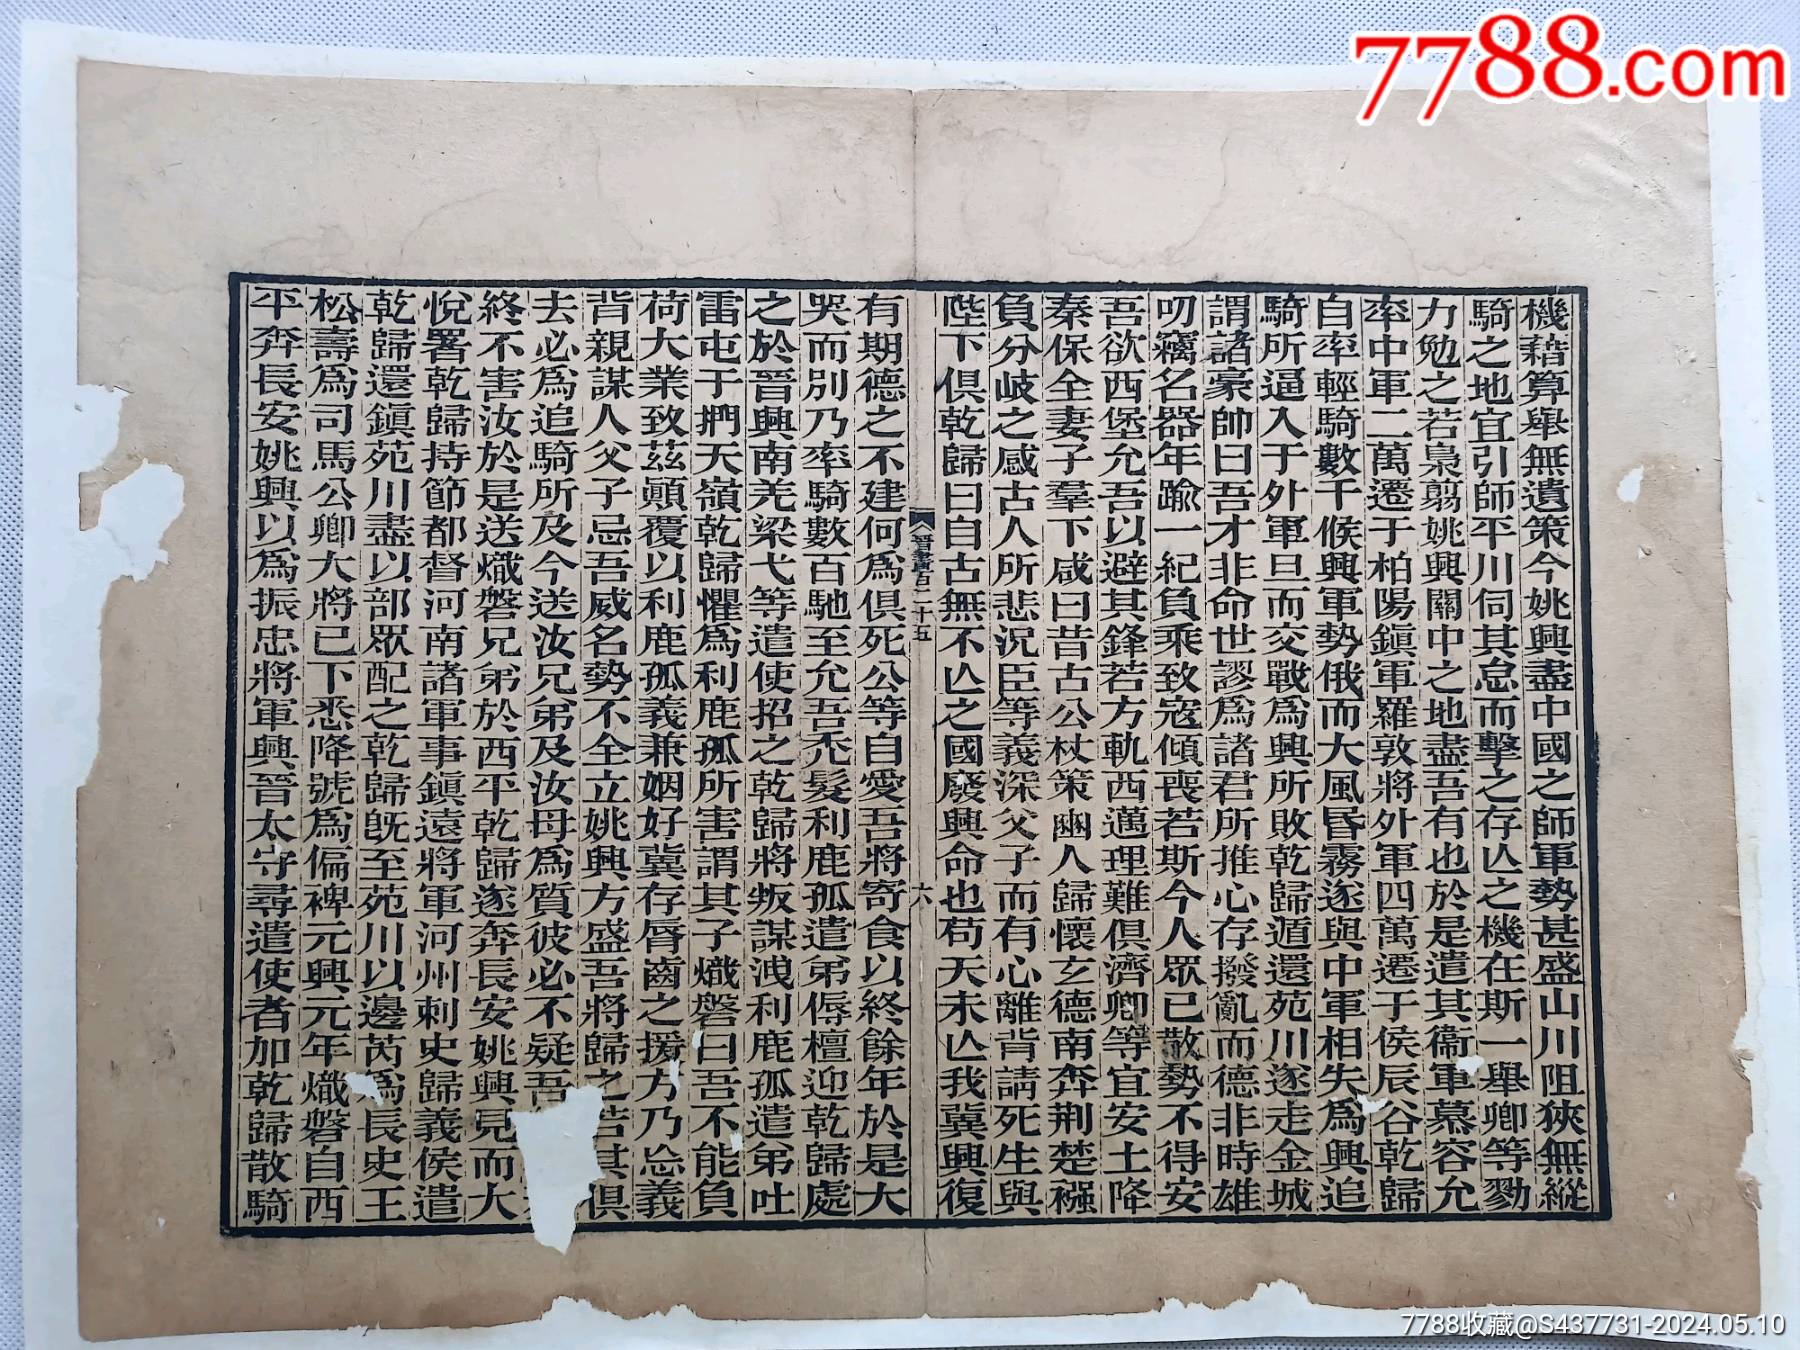 7788.com
機藉算舉無遺策今姚興盡中國之師軍勢甚盛山川阻狹無縱
騎之地宜引師平川伺其怠而擊之存亾之機在斯一舉卿等勠
力勉之若梟翦姚興關中之地盡吾有也於是遣其衞軍慕容允
率中軍二萬遷于柏陽鎭軍羅敦將外軍四萬遷于侯辰谷乾歸
自率輕騎數千候興軍勢俄而大風昏霧遂與中軍相失爲興追
騎所逼入于外軍旦而交戰爲興所敗乾歸遁還苑川遂走金城
謂諸豪帥曰吾才非命世謬爲諸君所推心存撥亂而德非時雄
叨竊名器年踰一紀負乘致寇傾喪若斯今人眾已散勢不得安
吾欲西堡允吾以避其鋒若方軌西邁理難俱濟卿等宜安土降
秦保全妻子羣下咸曰昔古公杖策豳人歸懷玄德南奔荆楚襁
負分岐之感古人所悲況臣等義深父子而有心離背請死生與
陛下俱乾歸曰自古無不亾之國廢興命也苟天未亾我冀興復
晉書百二十五
六
有期德之不建何爲俱死公等自愛吾將寄食以終餘年於是大
哭而別乃率騎數百馳至允吾禿髮利鹿孤遣弟傉檀迎乾歸處
之於晉興南羌梁弋等遣使招之乾歸將叛謀洩利鹿孤遣弟吐
雷屯于捫天嶺乾歸懼爲利鹿孤所害謂其子熾磐曰吾不能負
荷大業致茲顚覆以利鹿孤義兼姻好冀存脣齒之援方乃忘義
背親謀人父子忌吾威名勢不全立姚興方盛吾將歸之若其俱
去必爲追騎所及今送汝兄弟及汝母爲質彼必不疑吾
終不害汝於是送熾磐兄弟於西平乾歸遂奔長安姚興見而大
悅署乾歸持節都督河南諸軍事鎭遠將軍河州刺史歸義侯遣
乾歸還鎭苑川盡以部眾配之乾歸旣至苑川以邊芮爲長史王
松壽爲司馬公卿大將已下悉降號爲偏裨元興元年熾磐自西
平奔長安姚興以爲振忠將軍興晉太守尋遣使者加乾歸散騎
7788收藏@S437731-2024.05.10